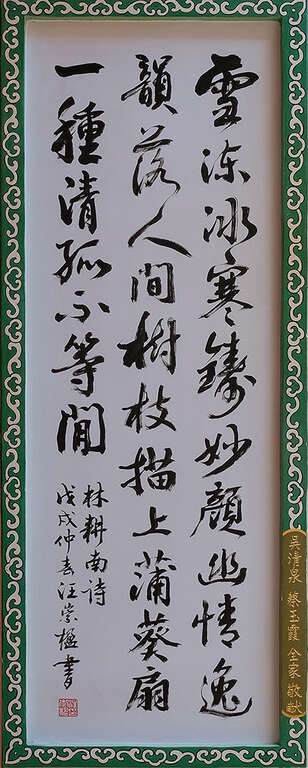 雪冻冰寒铸妙颜幽情逸
韻落人间樹枝描上蒲葵扇
一種清孤不等閒
林耕南诗
戊戌仲春汪崇楹書
吴清泉 蔡玉霞 全家 敬献